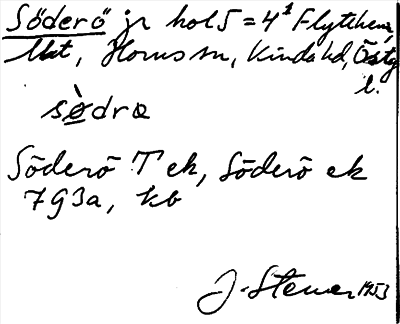 Söderö jr hol 5 = 4¹ Flytthem,
Horns sn, Kinda hd, Östg
l.
sødrɷ
Söderö T ek, Söderö ek
7G3a, kb
J. Stener 1953